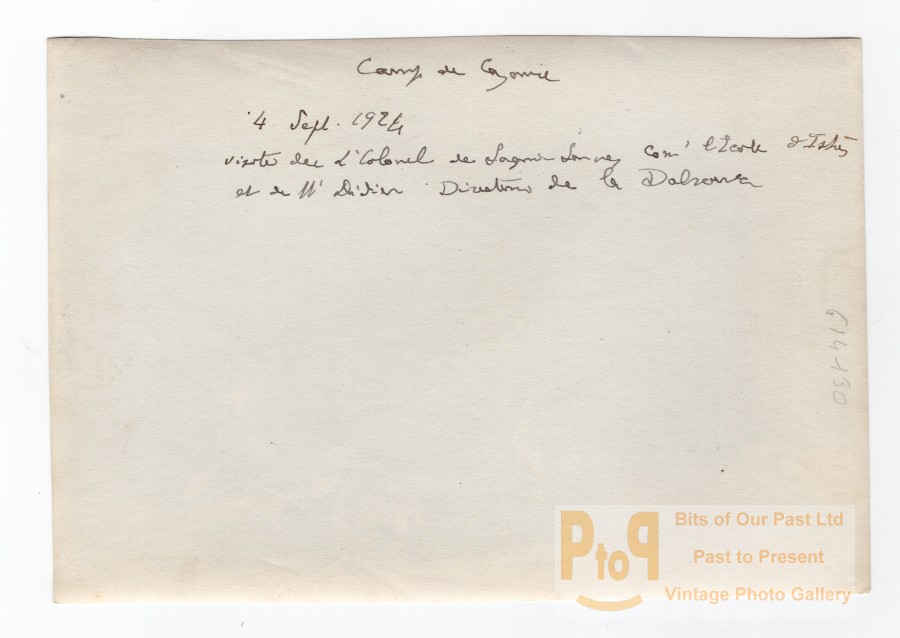 Camp de
4 Sept. 1924
visite du Lt Colonel de com' l'Ecole d'Istres
et de Mr Didier Directeur de la
614430
PtoP
Bits of Our Past Ltd
Past to Present
Vintage Photo Gallery